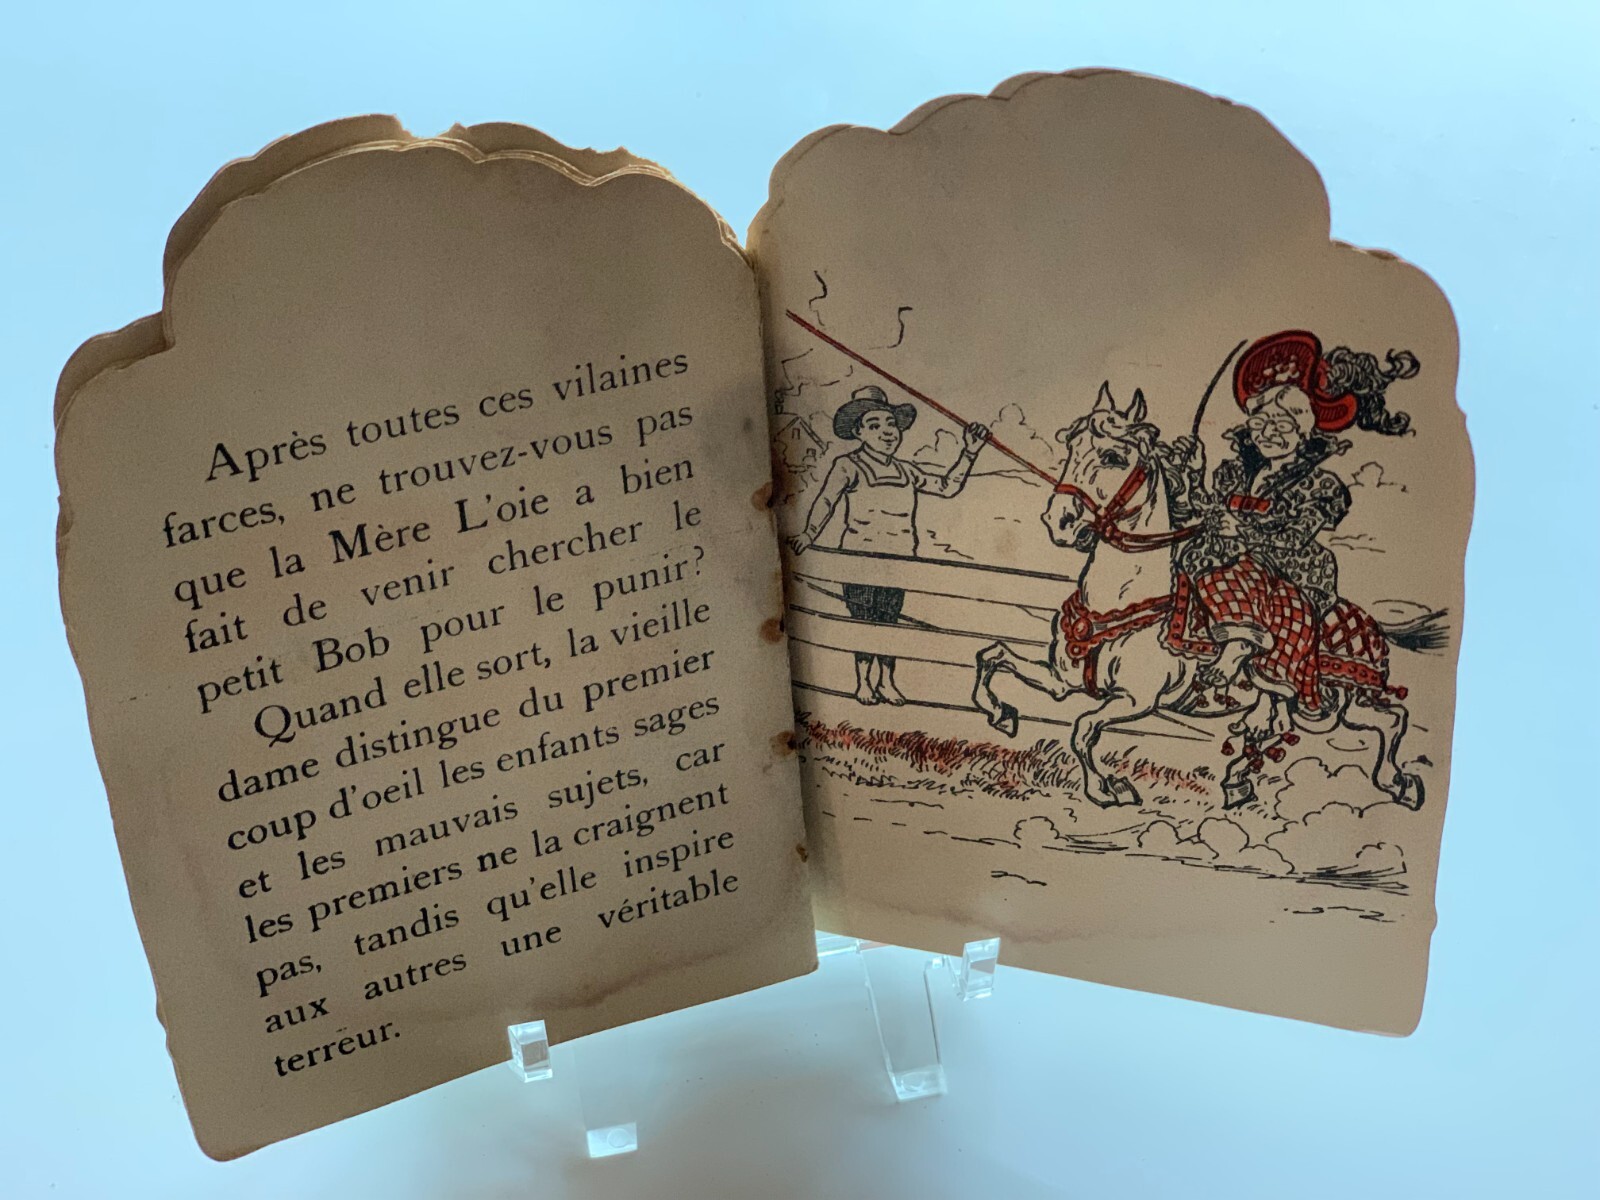 Après toutes ces vilaines
farces, ne trouvez-vous pas
que la Mère L'oie a bien
fait de venir chercher le
petit Bob pour le punir?
Quand elle sort, la vieille
dame distingue du premier
coup d'oeil les enfants sages
et les mauvais sujets, car
les premiers ne la craignent
pas, tandis qu'elle inspire
aux autres une véritable
terreur.